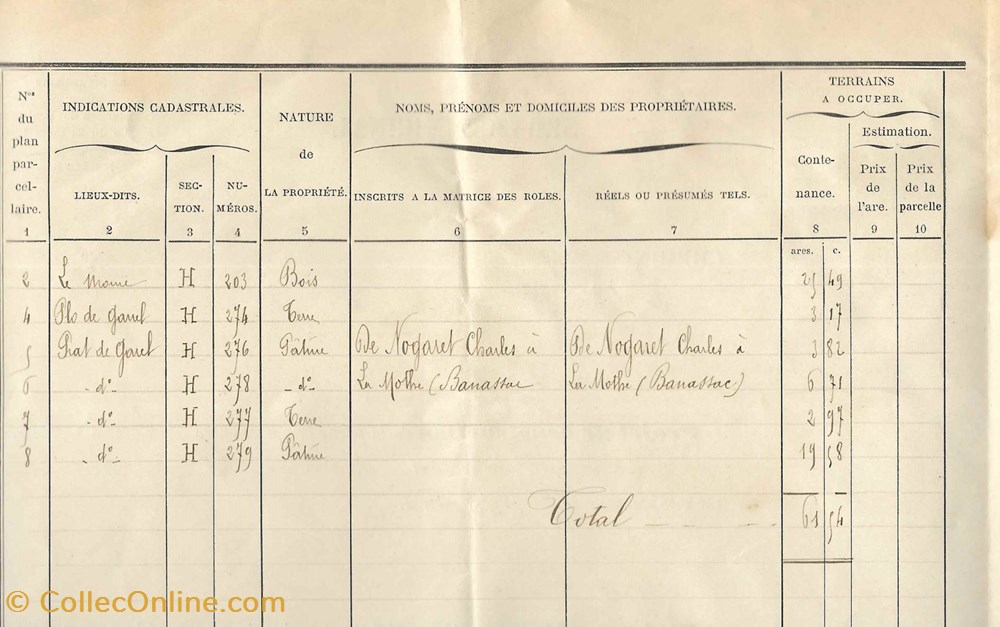 Nos du plan par- cel- laire.
INDICATIONS CADASTRALES.
NATURE de LA PROPRIÉTÉ.
NOMS, PRÉNOMS ET DOMICILES DES PROPRIÉTAIRES.
TERRAINS A OCCUPER.
LIEUX-DITS.
SEC- TION.
NU- MÉROS.
INSCRITS A LA MATRICE DES ROLES.
RÉELS OU PRÉSUMÉS TELS.
Conte- nance.
Estimation.
Prix de l'are.
Prix de la parcelle
1 2 3 4 5 6 7 8 9 10
ares. c.
2 Le H 203 Bois 25 49
4 Plo de H 274 Terre 3 17
5 Prat de H 276 Pâture De Nogaret Charles à De Nogaret Charles à 3 82
6 -do- H 278 -do- La Mothe (Banassac La Mothe (Banassac) 6 71
7 -do- H 277 Terre 2 97
8 -do- H 279 Pâture 19 58
Total 61 54
© CollecOnline.com